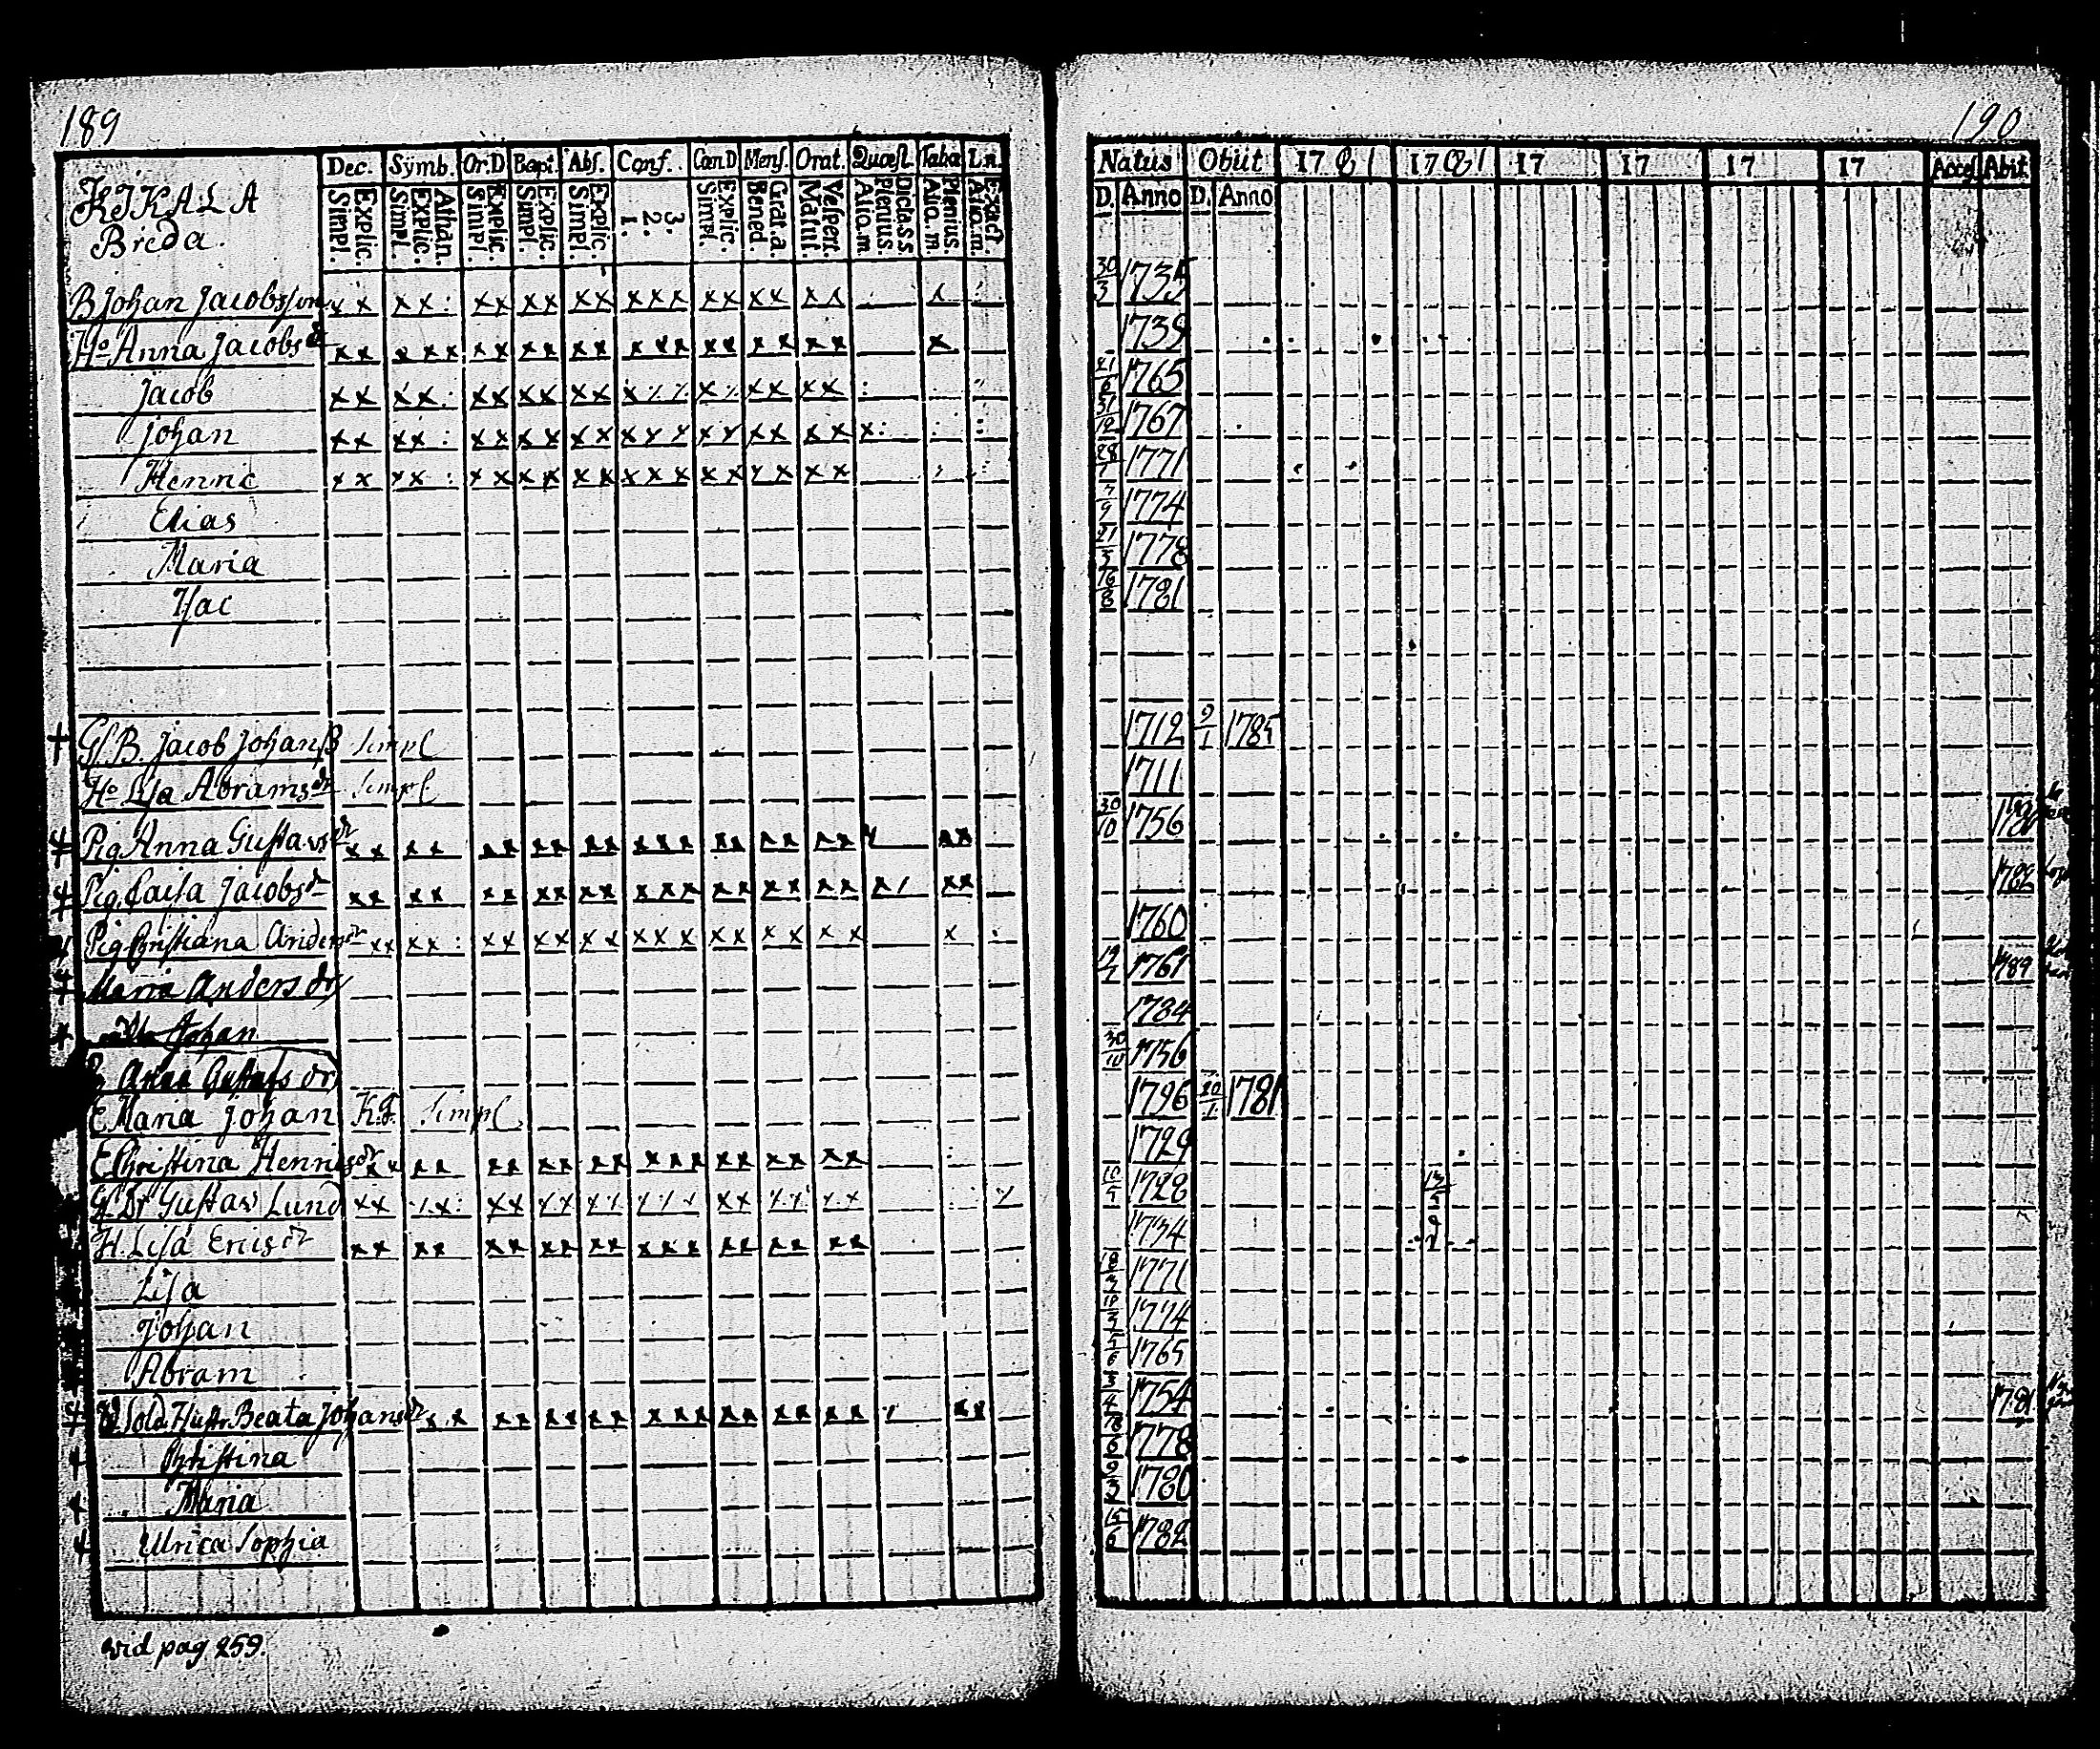 189
KIKALA
Breda.
Dec. Symb. Or.D Bapt. Abs. Conf. CœnD Mens. Orat. Quæst. Taba L.n.
Simpl. Explic. Simpl. Explic. Athan. Simpl. Explic. Simpl. Explic. Simpl. Explic. 1. 2. 3. Simpl. Explic. Bened. Grat.a. Matut. Vespert. Alio.m Plenius. Dicta ss. Alio.m. Plenius. Alio.m. Exact.
B Johan Jacobsson x x x x : x x x x x x x x x x x x x x x
Ho Anna Jacobs dr x x x x x x x x x x x x x x x x x x x x x
Jacob x x x x : x x x x x x x x x x x x x
Johan x x x x : x x x x x x x x x x x x x x x x x :
Henric x x x x : x x x x x x x x x x x x x x x x
Elias
Maria
Gl. B. Jacob Johanss Simpl
Ho Lisa Abrams dr Simpl
Pig. Anna Gustavs dr x x x x x x x x x x x x x x x x x x x x x x
Pig. Caisa Jacobs dr x x x x x x x x x x x x x x x x x x x x x x
Pig Christiana Anders dr x x x x : x x x x x x x x x x x x x x x x x
Maria Anders dr
Johan
Anna Gustafs dr
E Maria Johan Simpl
E Christina Henrics dr x x x x x x x x x x x x x x x x x x x
Gustav Lund x x x x : x x x x x x x x x x x x x x x
H. Lisa Erics dr x x x x x x x x x x x x x x x x x x x
Lisa
Johan
Abram
Sold. Hustr. Beata Johans dr x x x x x x x x x x x x x x x x x x x
Christina
Maria
Ulrica Sophia
vid pag 259.
190
Natus Obiit 1781 1781 17 17 17 17 Acces Abit
D. Anno D. Anno
30/3 1735
1738
1765
31/12 1767
28/1 1771
7/9 1774
21/5 1778
16/8 1781
1712 9/1 1785
1711
30/10 1756
1782
1760
1761 1789
1784
30/10 1756
1796 1781
1729
1728
1734
1771
1774
1765
1754 1781
1778
9/3 1780
1782